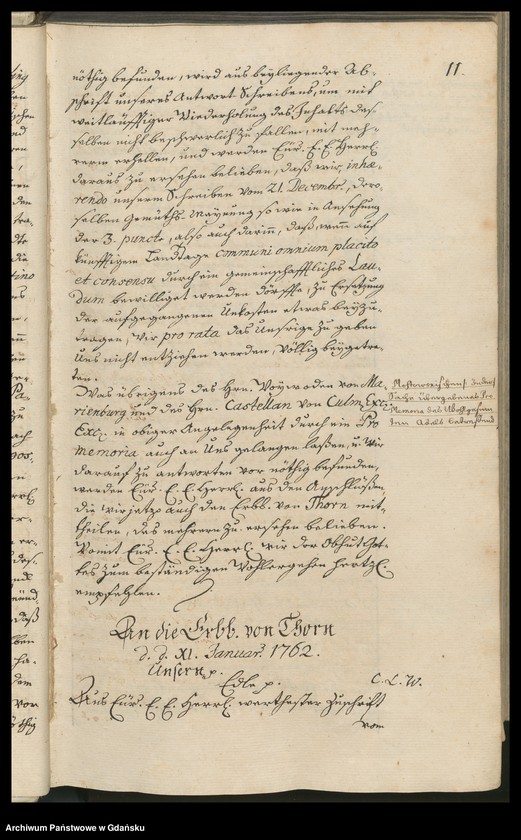 11.
nöthig befunden, wird aus beyliegender Ab-
schrift unseres Antwort-Schreibens, um mit
weitläufftiger Wiederholung des Inhalts des-
selben nicht beschwerlich zu fallen, mit meh-
rerm erhellen, und werden Eür. E. E. Herrl.
daraus zu ersehen belieben, daß wir, inhæ-
rendo unserm Schreiben vom 21 Decembr., dero-
selben Gemüths Maynung so wie in Ansehung
der 3. puncte, also auch darinn, daß, wenn auf
künfftigem Landtage communi omnium placito
et consensu durch ein gemeinschafftliches Lau-
dum bewilliget werden dörffte, zu Ersetzung
der aufgegangenen Unkosten etwas beyzu-
tragen, wir pro rata das Unsrige zu geben
Uns nicht entziehen werden, völlig beygetre-
ten.
Was übrigens des Hrn. Woywoden von Ma-
rienburg und des Hrn. Castellan von Culm Exc.
Exc. in obiger Angelegenheit durch ein Pro
memoria auch an Uns gelangen laßen, u. wir
darauf zu antworten vor nöthig befunden,
werden Eür. E. E. Herrl. aus den Anschlüßen,
die wir jetzo auch den Erbb. von Thorn mit-
theilen, des mehrern zu ersehen belieben.
Womit Eür. E. E. Herrl. wir der Obhut Got-
tes zum beständigen Wohlergehen hertzl.
empfehlen.
An die Erbb. von Thorn
d. d. XI. Januar. 1762.
Unsern p.
Edle p. C. L. W.
Aus Eür. E. E. Herrl. werthester Zuschrift
vom
Sache übergebenes Pro
Memoria des
Archiwum Państwowe w Gdańsku